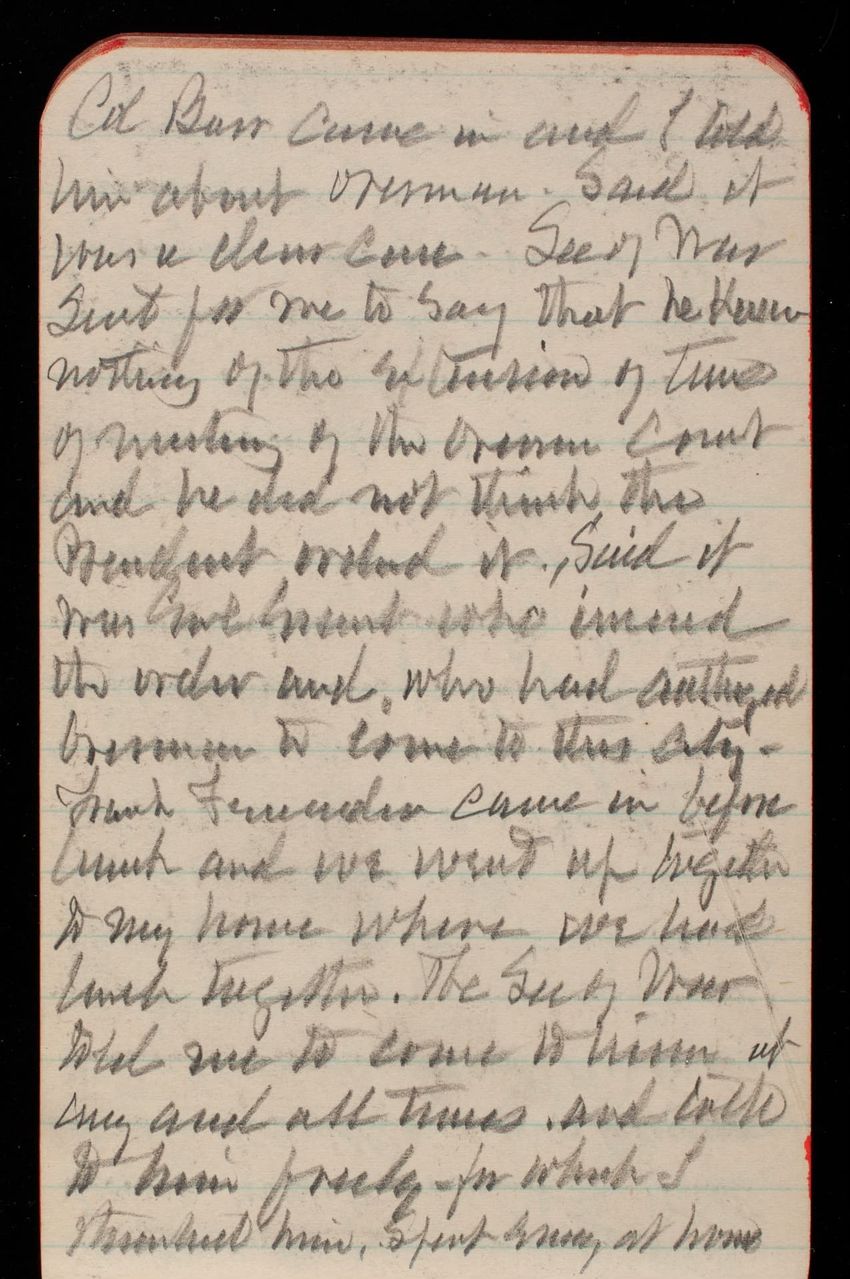 Col Barr came in and I told
him about Overman. Said it
was a clear case. Sec of War
Sent for me to say that he knew
nothing of the extension of time
of meeting of the Overman Court
and he did not think the
President ordered it. Said it
was who issued
the order and, who had authorized
Overman to come to this city -
Frank came in before
lunch and we went up together
to my home where we had
lunch together. The Sec of War
told me to come to him at
any and all times and talk
to him freely - for which I
thanked him. Spent at home